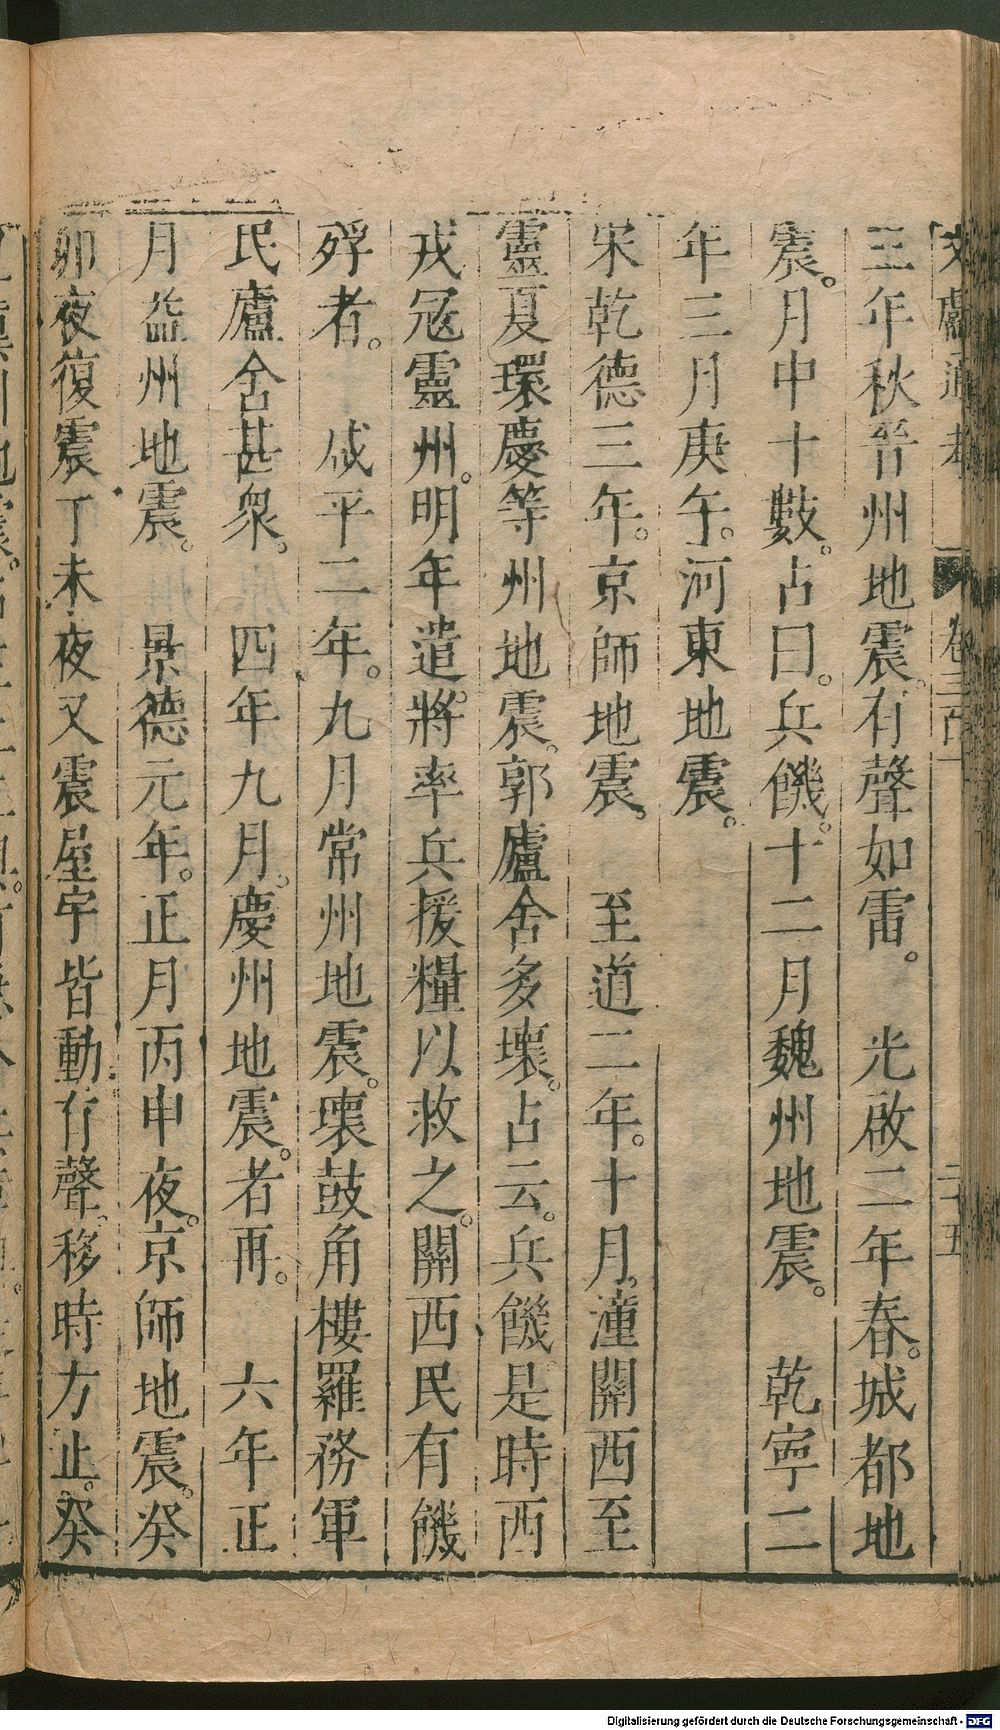 文獻通考 卷三百一 二十五
三年秋晉州地震有聲如雷。 光啟二年春。城都地
震。月中十數。占曰。兵饑。十二月魏州地震。 乾寧二
年三月庚午。河東地震。
宋乾德三年。京師地震。 至道二年。十月。潼關西至
靈夏環慶等州地震。郭廬舍多壞。占云。兵饑。是時西
戎冦靈州。明年遣將。率兵援糧以救之。關西民有饑
殍者。 咸平二年。九月常州地震。壞鼓角樓羅務軍
民廬舍甚衆。 四年九月。慶州地震。者再。 六年正
月益州地震。 景德元年。正月丙申夜。京師地震。癸
卯夜復震丁未夜又震屋宇皆動有聲。移時方止。癸
Digitalisierung gefördert durch die Deutsche Forschungsgemeinschaft - DFG